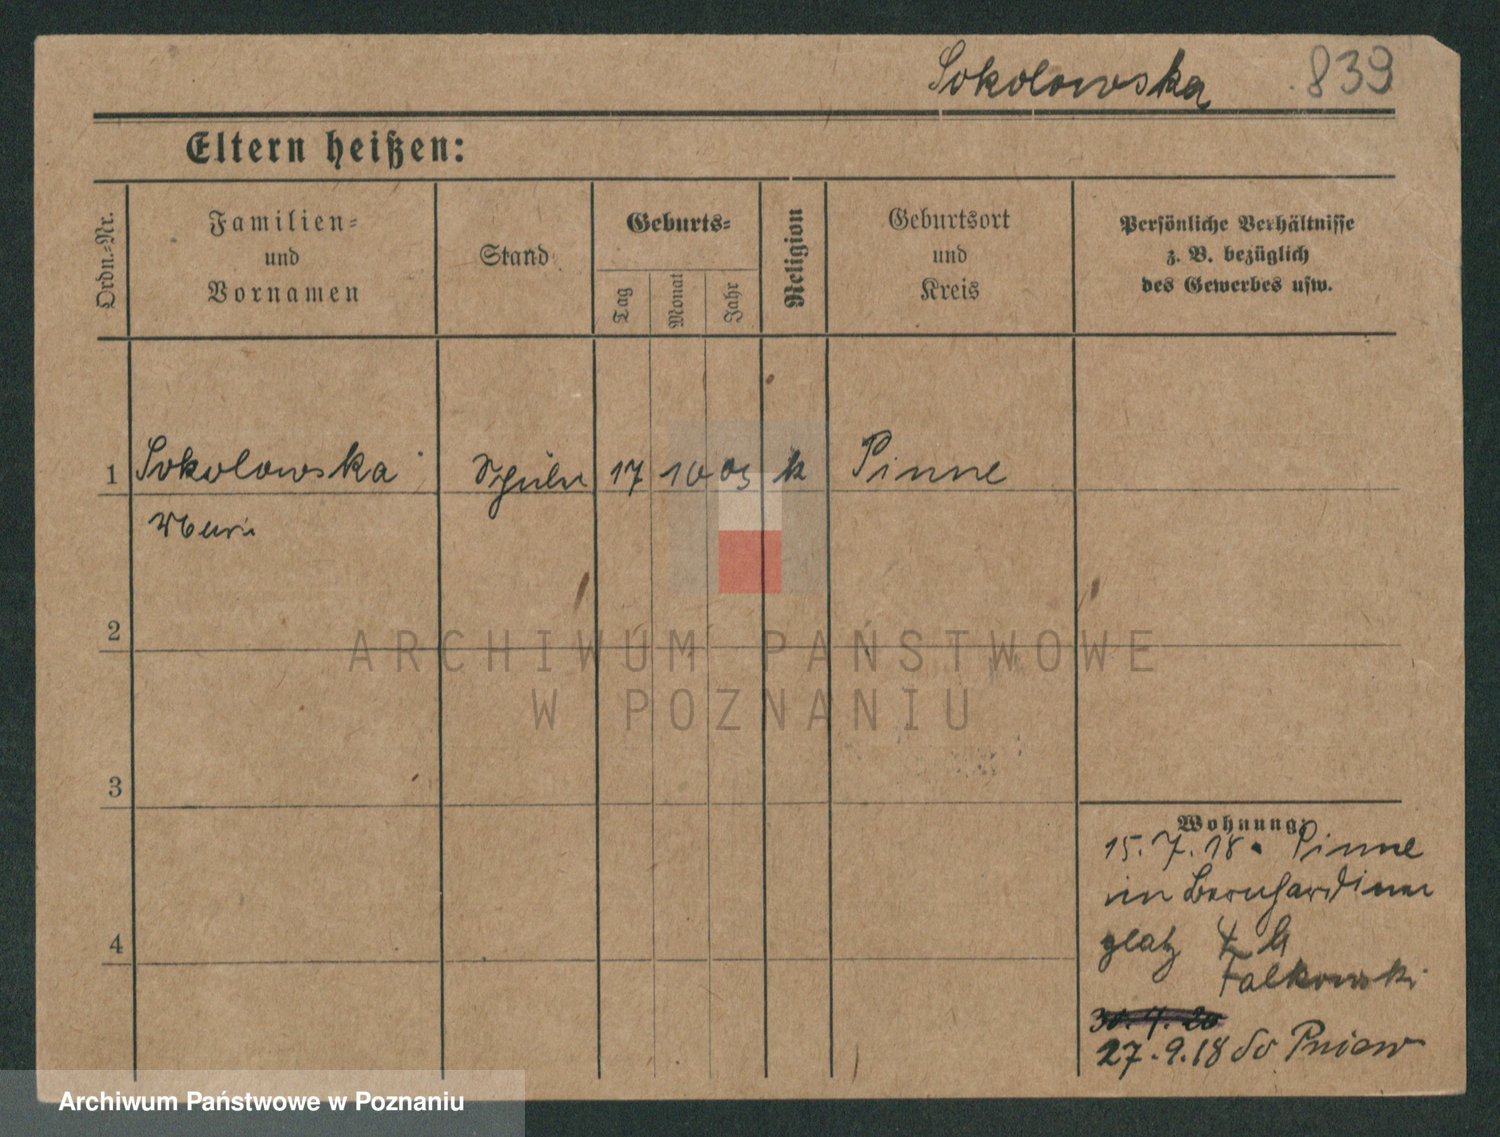 Sokolowska 839
Eltern heißen:
Ordn.-Nr.
Familien-
und
Vornamen
Stand
Geburts-
Tag
Monat
Jahr
Religion
Geburtsort
und
Kreis
Persönliche Verhältnisse
z. B. bezüglich
des Gewerbes usw.
1 Sokolowska 17 10 03 k Pinne
2
3
4
Wohnung:
15.7.18. Pinne
Bernhardiner
Falkowski
27.9.18 do Pniew
ARCHIWUM PAŃSTWOWE
W POZNANIU
Archiwum Państwowe w Poznaniu